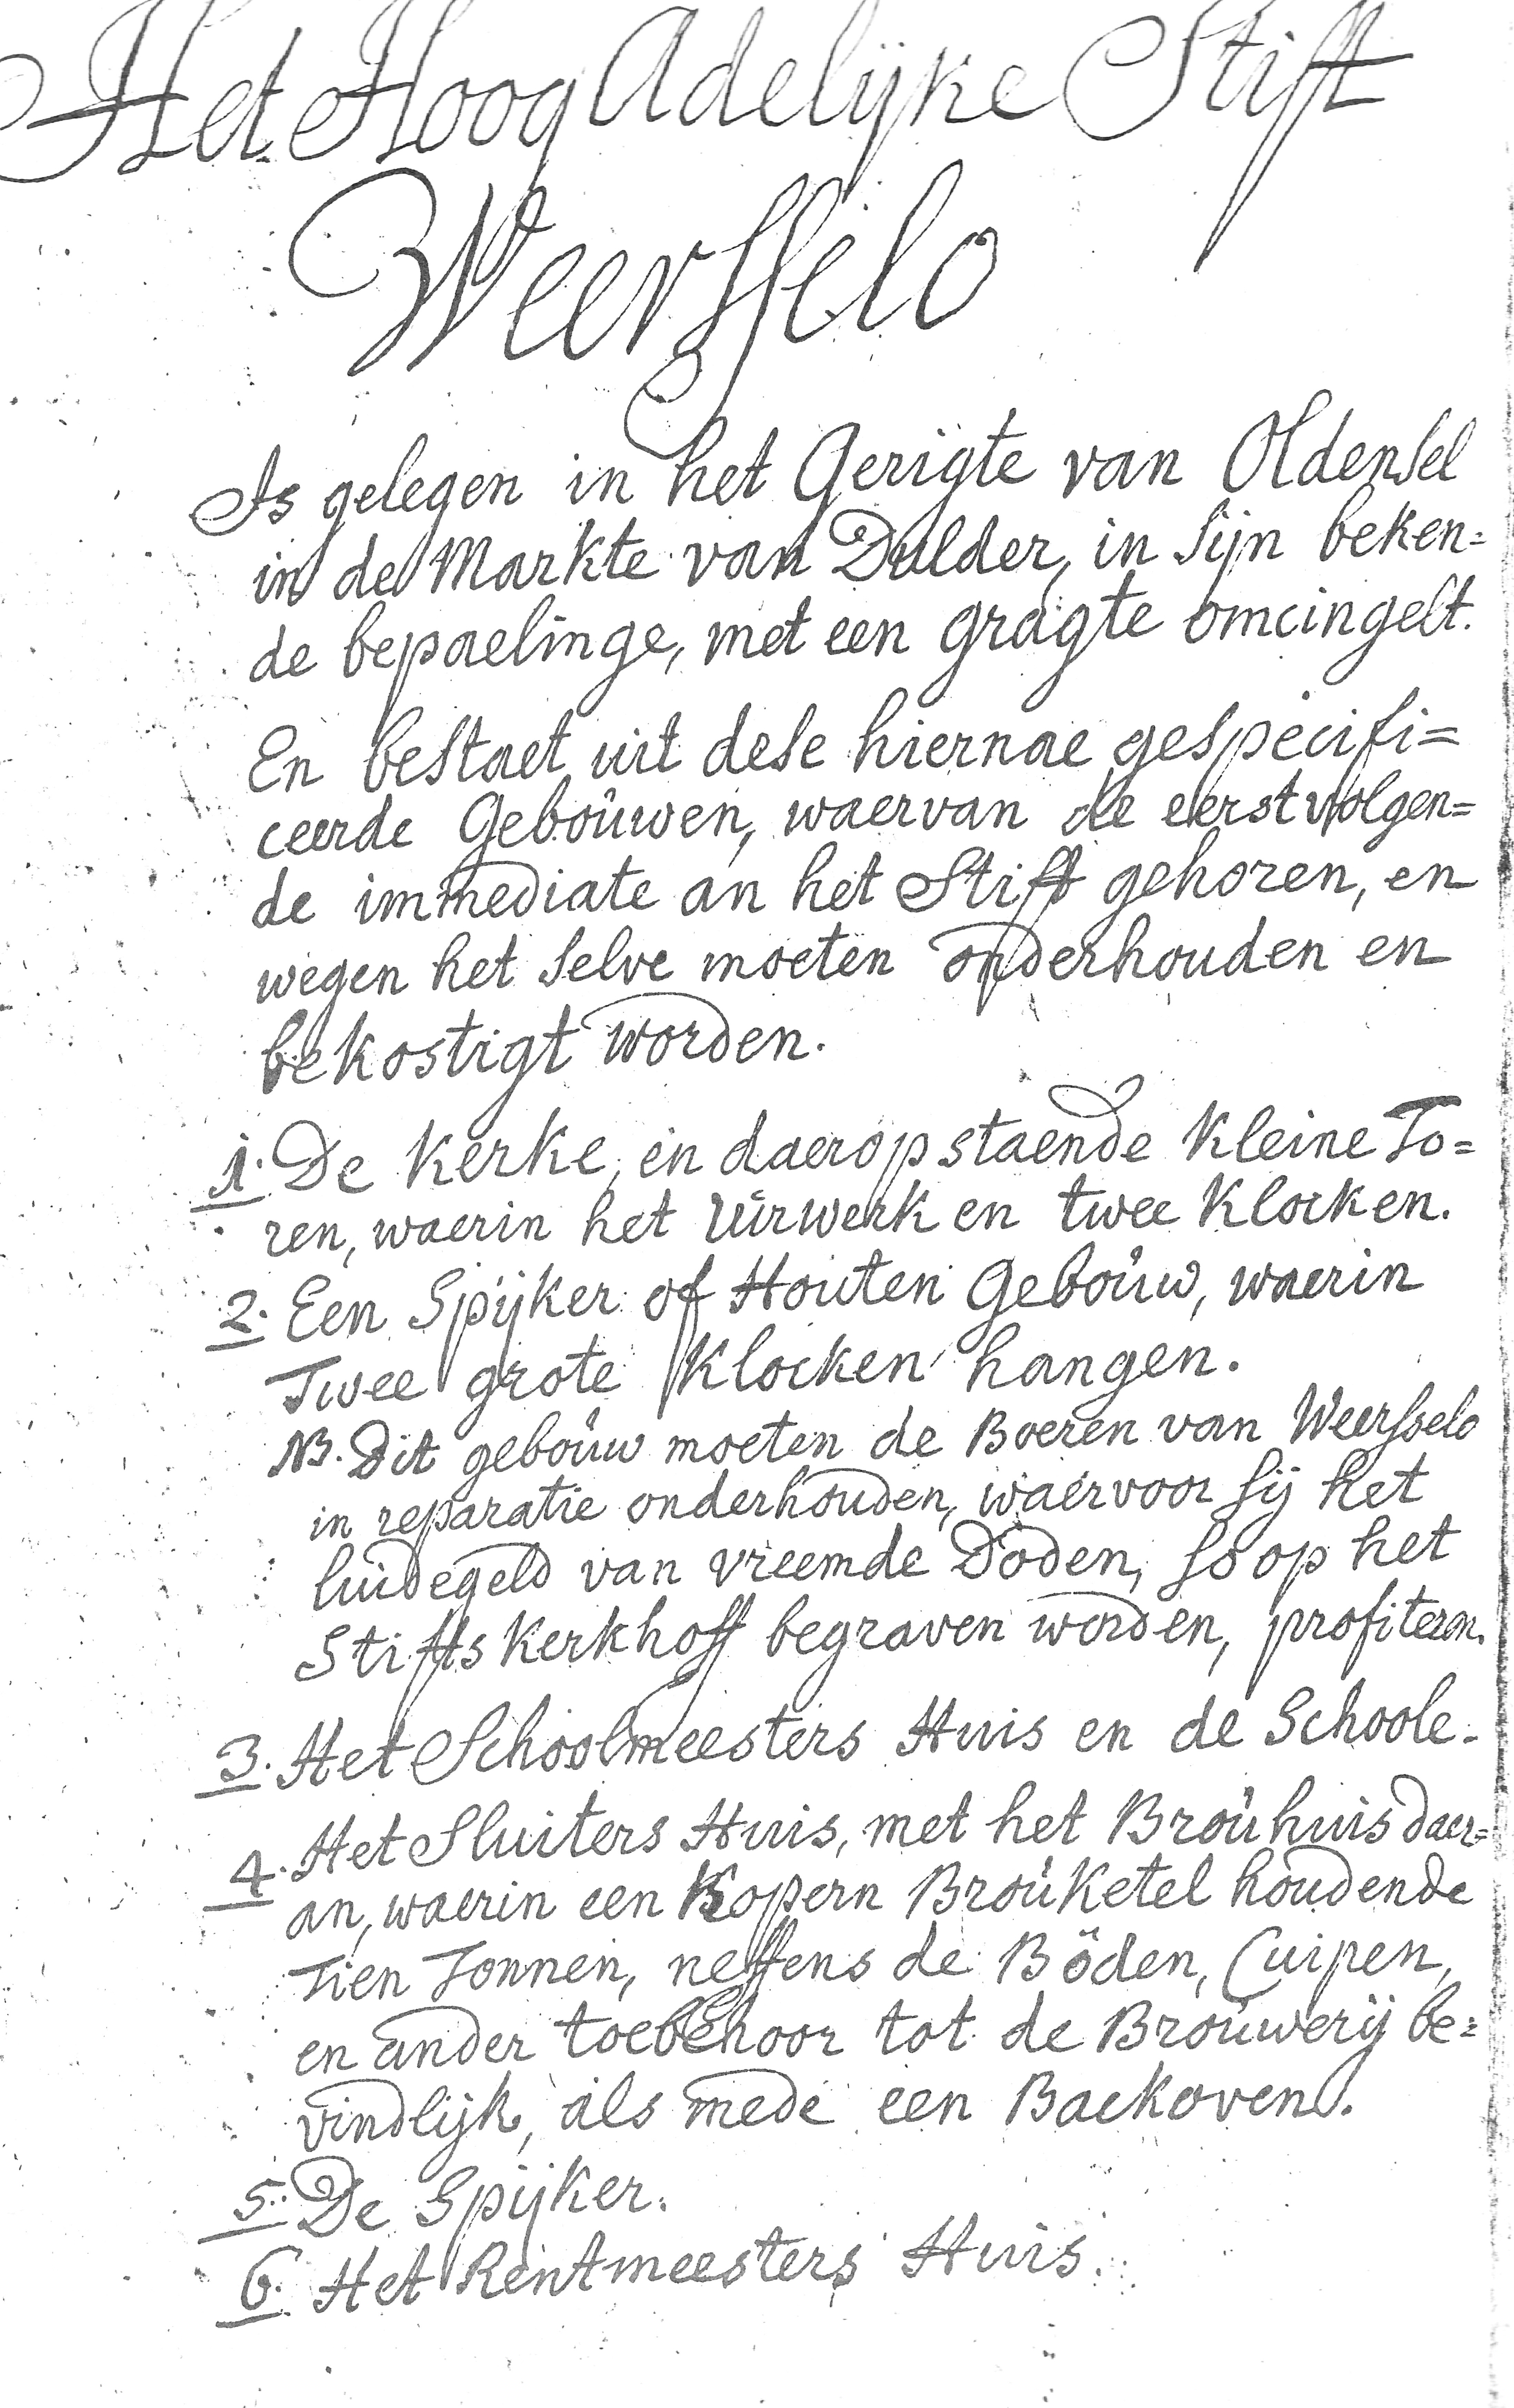 Het Hoog Adelijke Stift
Weersselo
Is gelegen in het Gerigte van Oldensel
in de Markte van Dulder, in sijn beken=
de bepaelinge, met een gragte omcingelt.
En bestaet uit dese hiernae gespecifi=
ceerde Geboúwen, waervan de eerstvolgen=
de immediate an het Stift gehoren, en
wegen het selve moeten onderhouden en
bekostigt worden.
1. De Kerke, en daerop staende Kleine To=
ren, waerin het Uirwerk en twee Klocken.
2. Een Spijker of Houten Geboúw, waerin
Twee grote Klocken hangen.
NB. Dit geboúw moeten de Boeren van Weersselo
in reparatie onderhouden, waervoor sij het
luidegeld van vreemde Doden, so op het
Stiftskerkhoff begraven worden, profiteren.
3. Het Schoolmeesters Huis en de Schoole.
4. Het Sluiters Huis, met het Broúhuis daer=
an, waerin een Kopern Broúketel houdende
Tien Tonnen, neffens de Böden, Cuipen,
en ander toebehoor tot de Broúwerij be=
vindlijk, als mede een Backoven.
5. De Spijker.
6. Het Rentmeesters Huis.